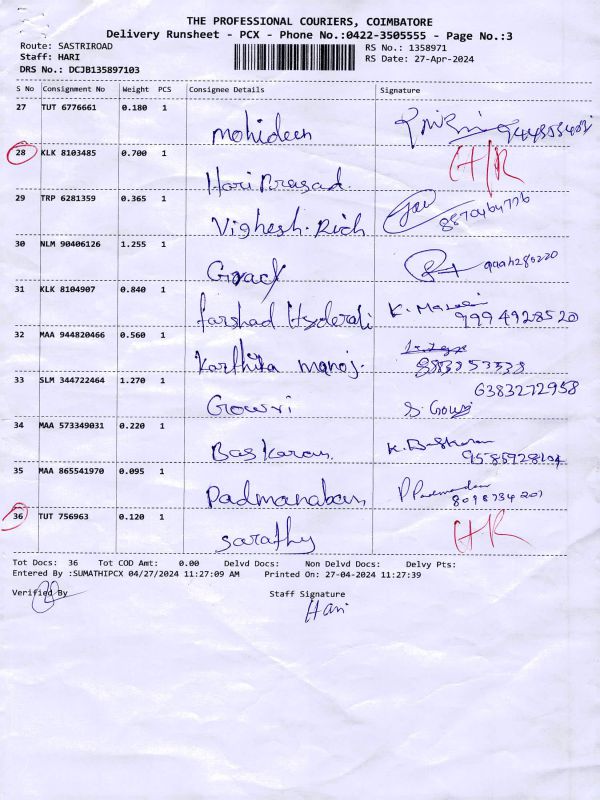 THE PROFESSIONAL COURIERS, COIMBATORE
Delivery Runsheet - PCX - Phone No.:0422-3505555 - Page No.:3
Route: SASTRIROAD RS No.: 1358971
Staff: HARI RS Date: 27-Apr-2024
DRS No.: DCJB135897103
S No Consignment No Weight PCS Consignee Details Signature
27 TUT 6776661 0.180 1
Mohideen
28 KLK 8103485 0.700 1 HR
Hari Prasad.
29 TRP 6281359 0.365 1
Vighesh. Rich
30 NLM 90406126 1.255 1
31 KLK 8104907 0.840 1
farshad Hyderali K. 9994928520
32 MAA 944820466 0.560 1
Karthika manoj.
33 SLM 344722464 1.270 1 6383272958
Gowri S. Gowri
34 MAA 573349031 0.220 1
Baskaran. K. Baskaran
35 MAA 865541970 0.095 1
Padmanaban P Padmanaban
36 TUT 756963 0.120 1 HR
Sarathy
Tot Docs: 36 Tot COD Amt: 0.00 Delvd Docs: Non Delvd Docs: Delvy Pts:
Entered By :SUMATHIPCX 04/27/2024 11:27:09 AM Printed On: 27-04-2024 11:27:39
Verified By Staff Signature
Hari